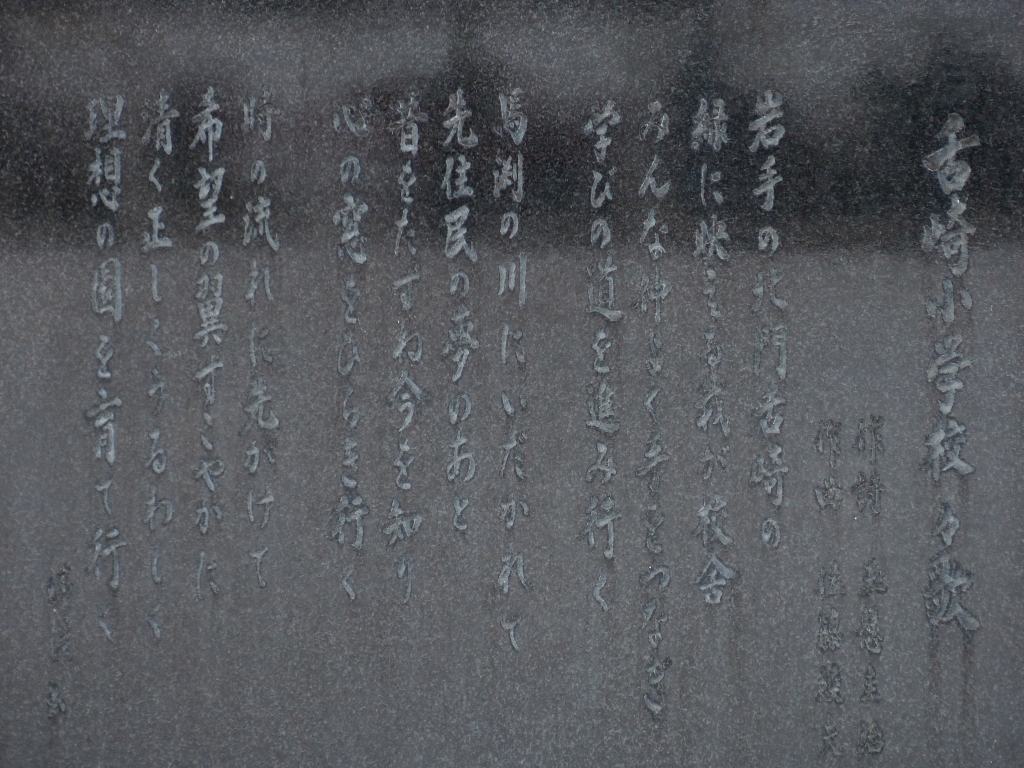 舌崎小学校々歌
作詩
作曲 佐藤
岩手の北門舌崎の
緑に映える我が校舎
みんな仲よく手をつなぎ
学びの道を進み行く
馬渕の川にいだかれて
先住民の夢のあと
昔をたずね今を知り
心の窓をひらき行く
時の流れに先がけて
希望の翼すこやかに
清く正しくうるわしく
理想の園を育て行く